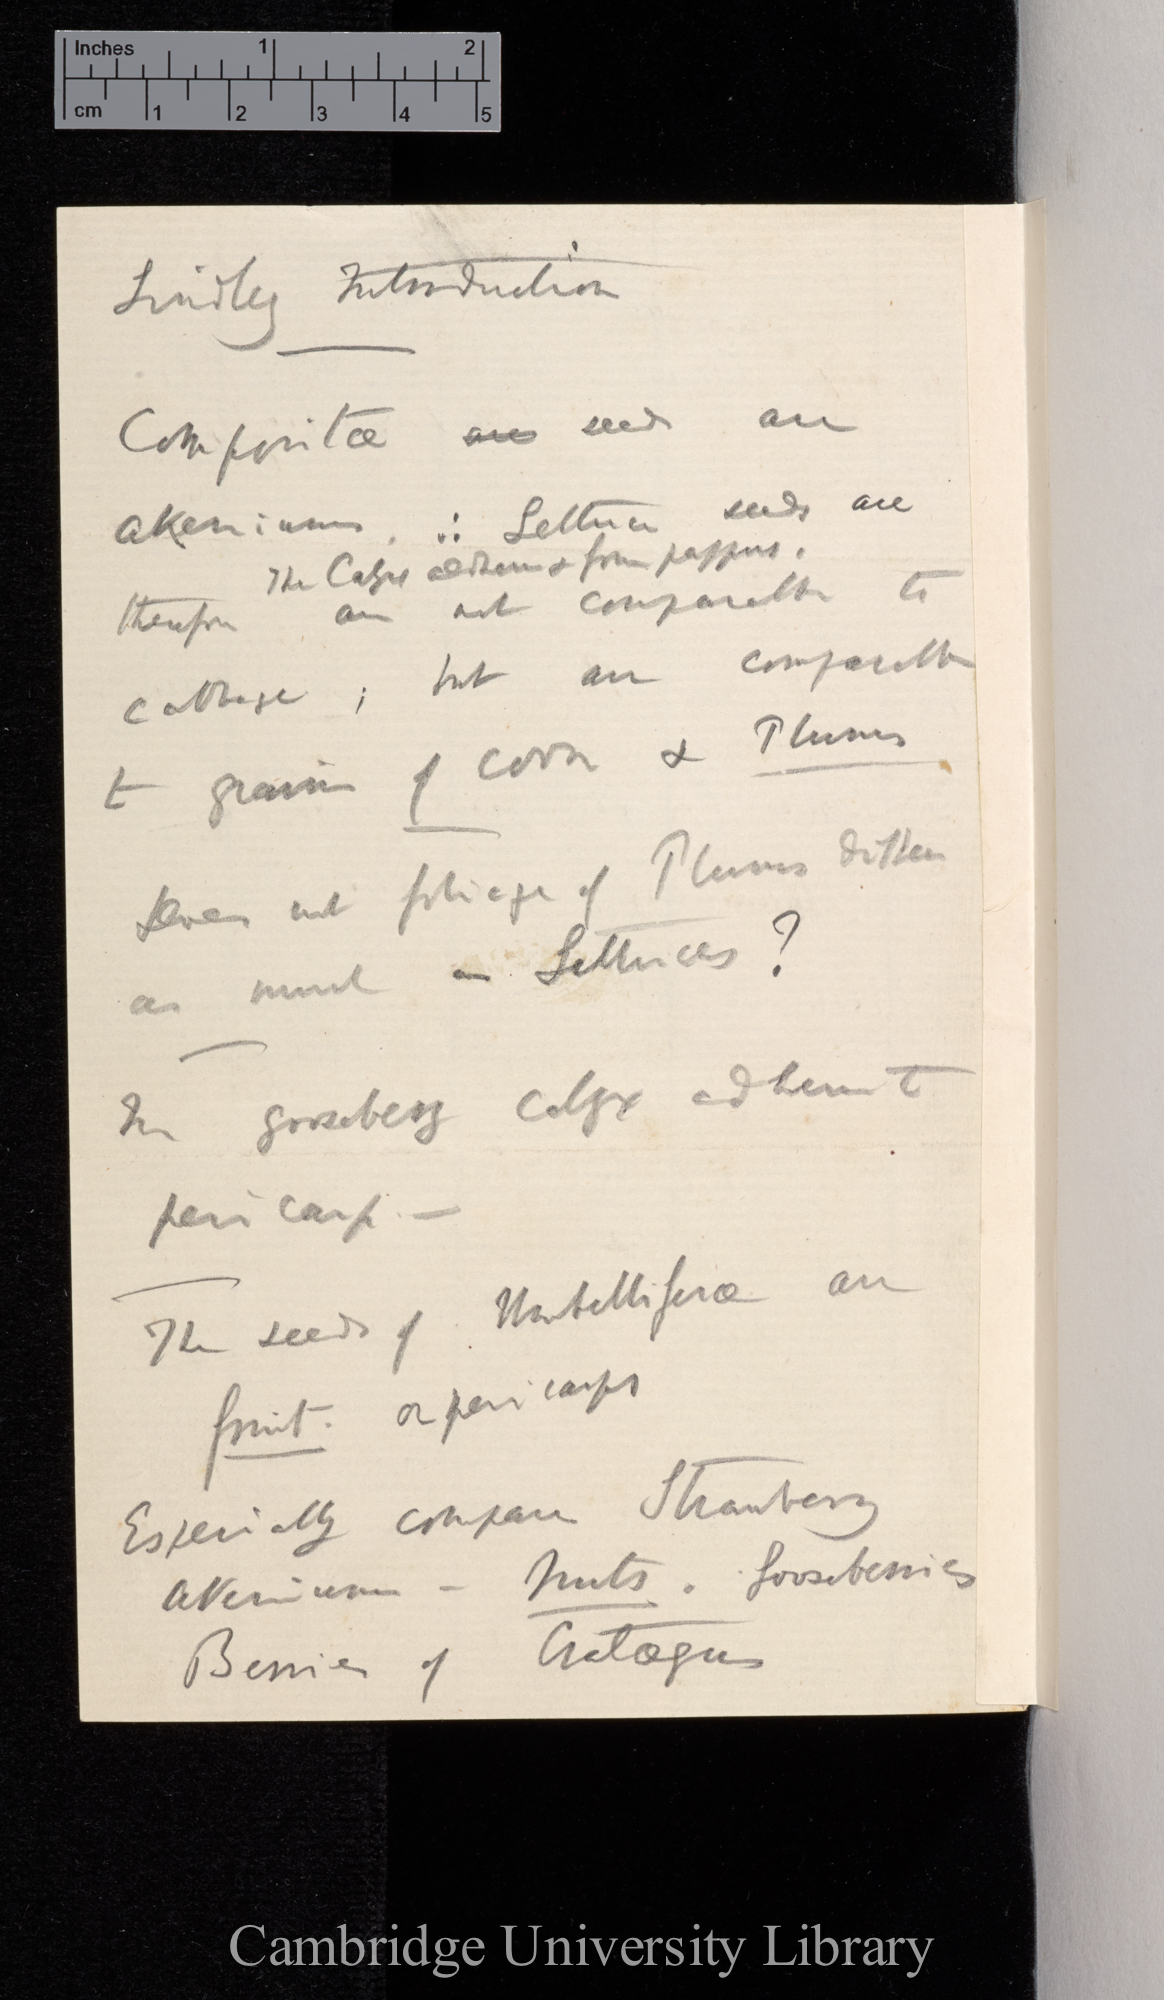 Inches 1 2
cm 1 2 3 4 5
Lindley Introduction
Compositæ are seed are
akeniums. ∴ Lettuce seeds are
The Calyx adheres & form pappus.
therefore are not comparable to
cabbage ; but are comparable
to grains of corn & Plums
Does not foliage of Plums differ
as much as Lettuces ?
In gooseberry calyx adhere to
pericarp. —
The seeds of Umbelliferæ are
fruit. or pericarps
Especially compare Strawberry
akenium – Nuts. Gooseberries
Berries of Cratægus
Cambridge University Library